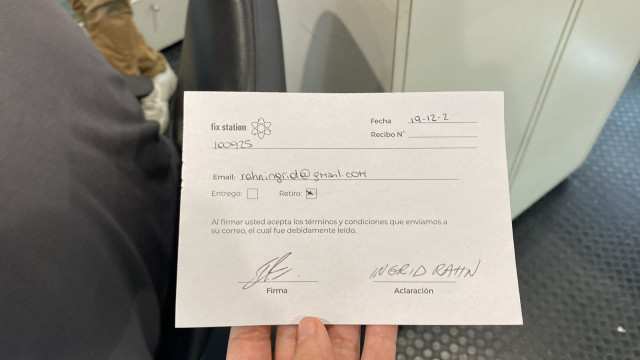 fix station
Fecha 19-12-2
Recibo N°
160925
Email: rahningrid@gmail.com
Entrego: Retiro: x
Al firmar usted acepta los términos y condiciones que enviamos a
su correo, el cual fue debidamente leído.
INGRID RAHN
Firma Aclaración